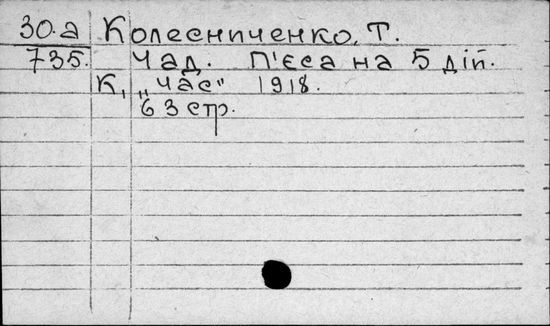 30.а Колесниченко, Т.
735. Чад. П'єса на 5 дій.
К, „Час" 1918.
63 стр.